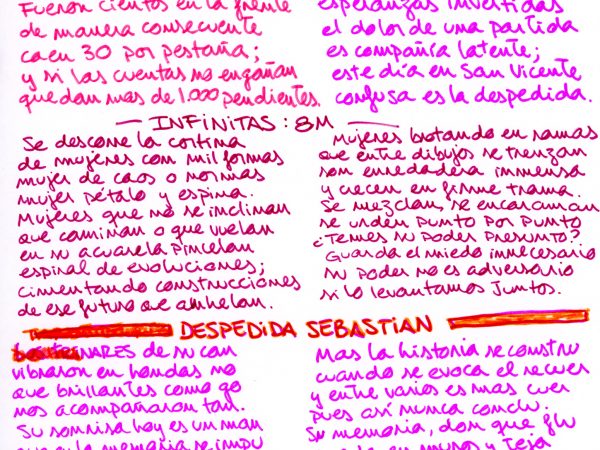 Fueron cientos en la frente
de manera consecuente
caen 30 por pestaña;
y si las cuentas no engañan
quedan mas de 1.000 pendientes.
esperanzas invertidas
el dolor de una partida
es compañía latente;
este día en San Vicente
confusa es la despedida.
INFINITAS : 8M
Se descorre la cortina
de mujeres con mil formas
mujer de caos o normas
mujer pétalo y espina.
Mujeres que no se inclinan
que caminan o que vuelan
en su acuarela pincelan
espiral de evoluciones;
cimentando construcciones
de ese futuro que anhelan.
Mujeres brotando en ramas
que entre dibujos se trenzan
son enredadera inmensa
y crecen en firme trama.
Se mezclan, se encaraman
se unden punto por punto
¿Temes su poder presunto?
Guarda el miedo innecesario
su poder no es adversario
si lo levantamos juntos.
DESPEDIDA SEBASTIAN
NARES de su can
vibraron en hondas no
que brillantes como go
nos acompañaron tan.
Su sonrisa hoy es un man
que en la memoria se impu
Mas la historia se constru
cuando se evoca el recuer
y entre varios es mas cuer
pues así nunca conclu.
Su memoria, don que flu
en muros y teja